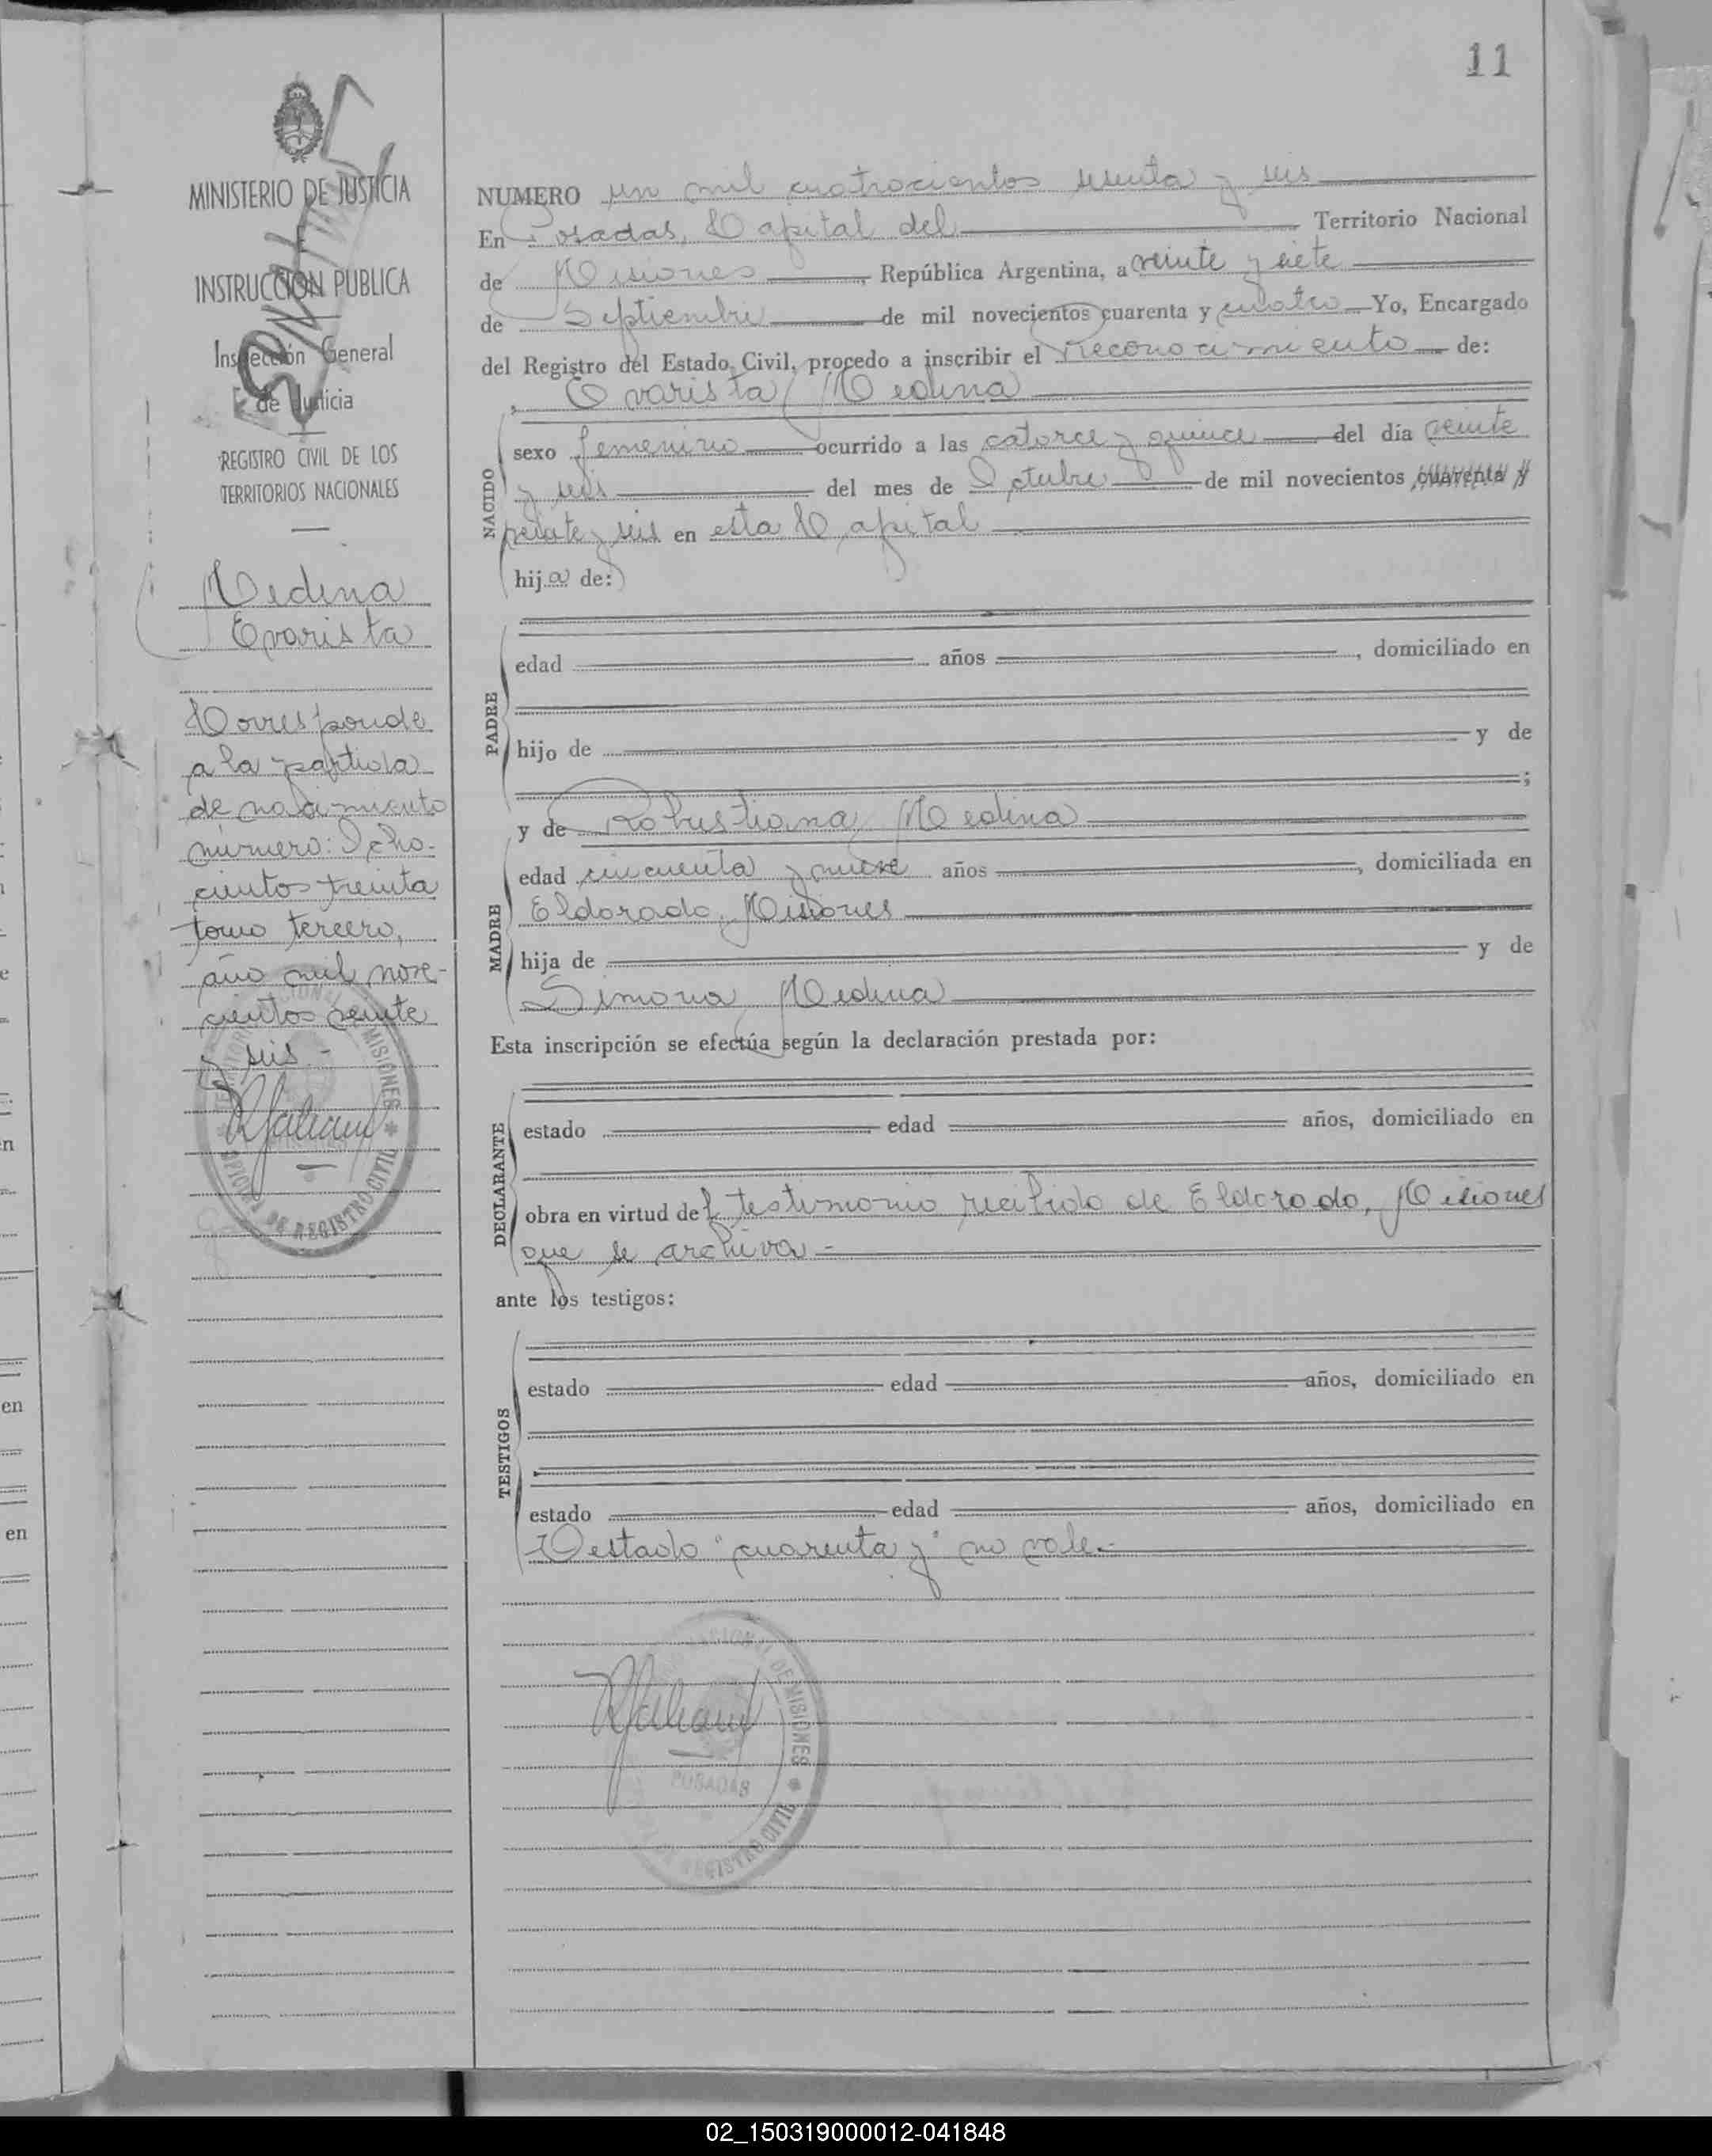 11
MINISTERIO DE JUSTICIA
INSTRUCCION PUBLICA
Inspección General
de Justicia
REGISTRO CIVIL DE LOS
TERRITORIOS NACIONALES
Medina
Evarista
Corresponde
a la partida
de nacimiento
número: Ocho-
cientos treinta
tomo tercero,
año mil nove-
cientos veinte
y seis.-
MISIONES
OFICINA DE REGISTRO CIVIL
NUMERO un mil cuatrocientos sesenta y seis
En Posadas, Capital del Territorio Nacional
de Misiones, República Argentina, a veinte y siete
de Septiembre de mil novecientos cuarenta y cuatro Yo, Encargado
del Registro del Estado Civil, procedo a inscribir el reconocimiento de:
Evarista Medina
NACIDO
sexo femenino ocurrido a las catorce y quince del día veinte
y seis del mes de Octubre de mil novecientos cuarenta y
veinte y seis en esta Capital
hija de:
PADRE
edad años, domiciliado en
hijo de y de
;
MADRE
y de Robustiana Medina
edad cincuenta y nueve años, domiciliada en
Eldorado, Misiones
hija de y de
Simona Medina
Esta inscripción se efectúa según la declaración prestada por:
DECLARANTE
estado edad años, domiciliado en
obra en virtud del testimonio recibido de Eldorado, Misiones
que se archiva.-
ante los testigos:
TESTIGOS
estado edad años, domiciliado en
estado edad años, domiciliado en
Testado "cuarenta y" no vale.-
NACIONAL DE MISIONES
POSADAS
REGISTRO CIVIL
02_150319000012-041848